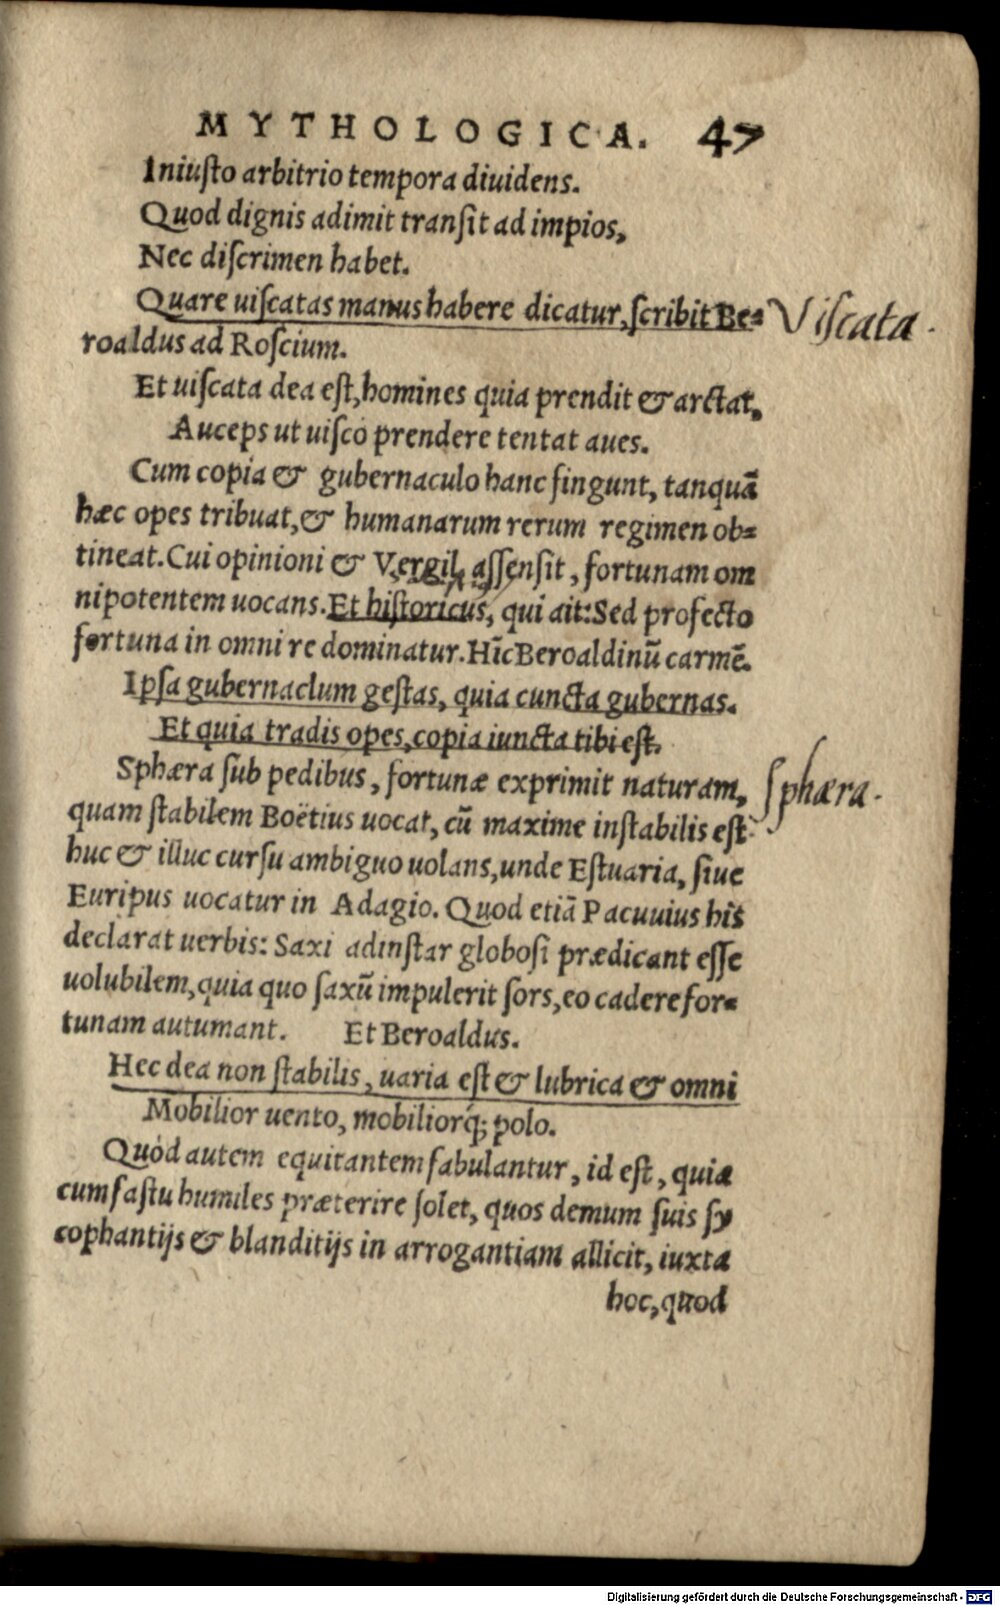 MYTHOLOGICA. 47
Iniuſto arbitrio tempora diuidens.
Quod dignis adimit tranſit ad impios,
Nec diſcrimen habet.
Quare uiſcatas manus habere dicatur, ſcribit Be=
Viſcata.
roaldus ad Roſcium.
Et uiſcata dea eſt, homines quia prendit & arctat,
Auceps ut uiſco prendere tentat aues.
Cum copia & gubernaculo hanc fingunt, tanquā
hæc opes tribuat, & humanarum rerum regimen ob=
tineat. Cui opinioni & Vergil. aſſenſit, fortunam om
nipotentem uocans. Et hiſtoricus, qui ait: Sed profecto
fortuna in omni re dominatur. Hīc Beroaldinū carmē.
Ipſa gubernaclum geſtas, quia cuncta gubernas.
Et quia tradis opes, copia iuncta tibi eſt.
Sphæra ſub pedibus, fortunæ exprimit naturam,
ſphæra.
quam ſtabilem Boëtius uocat, cū maxime inſtabilis eſt
huc & illuc curſu ambiguo uolans, unde Eſtuaria, ſiue
Euripus uocatur in Adagio. Quod etiā Pacuuius his
declarat uerbis: Saxi adinſtar globoſi prædicant eſſe
uolubilem, quia quo ſaxū impulerit ſors, eo cadere for=
tunam autumant. Et Beroaldus.
Hec dea non ſtabilis, uaria eſt & lubrica & omni
Mobilior uento, mobiliorq́; polo.
Quòd autem equitantem fabulantur, id eſt, quia
cum faſtu humiles præterire ſolet, quos demum ſuis ſy
cophantijs & blanditijs in arrogantiam allicit, iuxta
hoc, quod
Digitalisierung gefördert durch die Deutsche Forschungsgemeinschaft - DFG